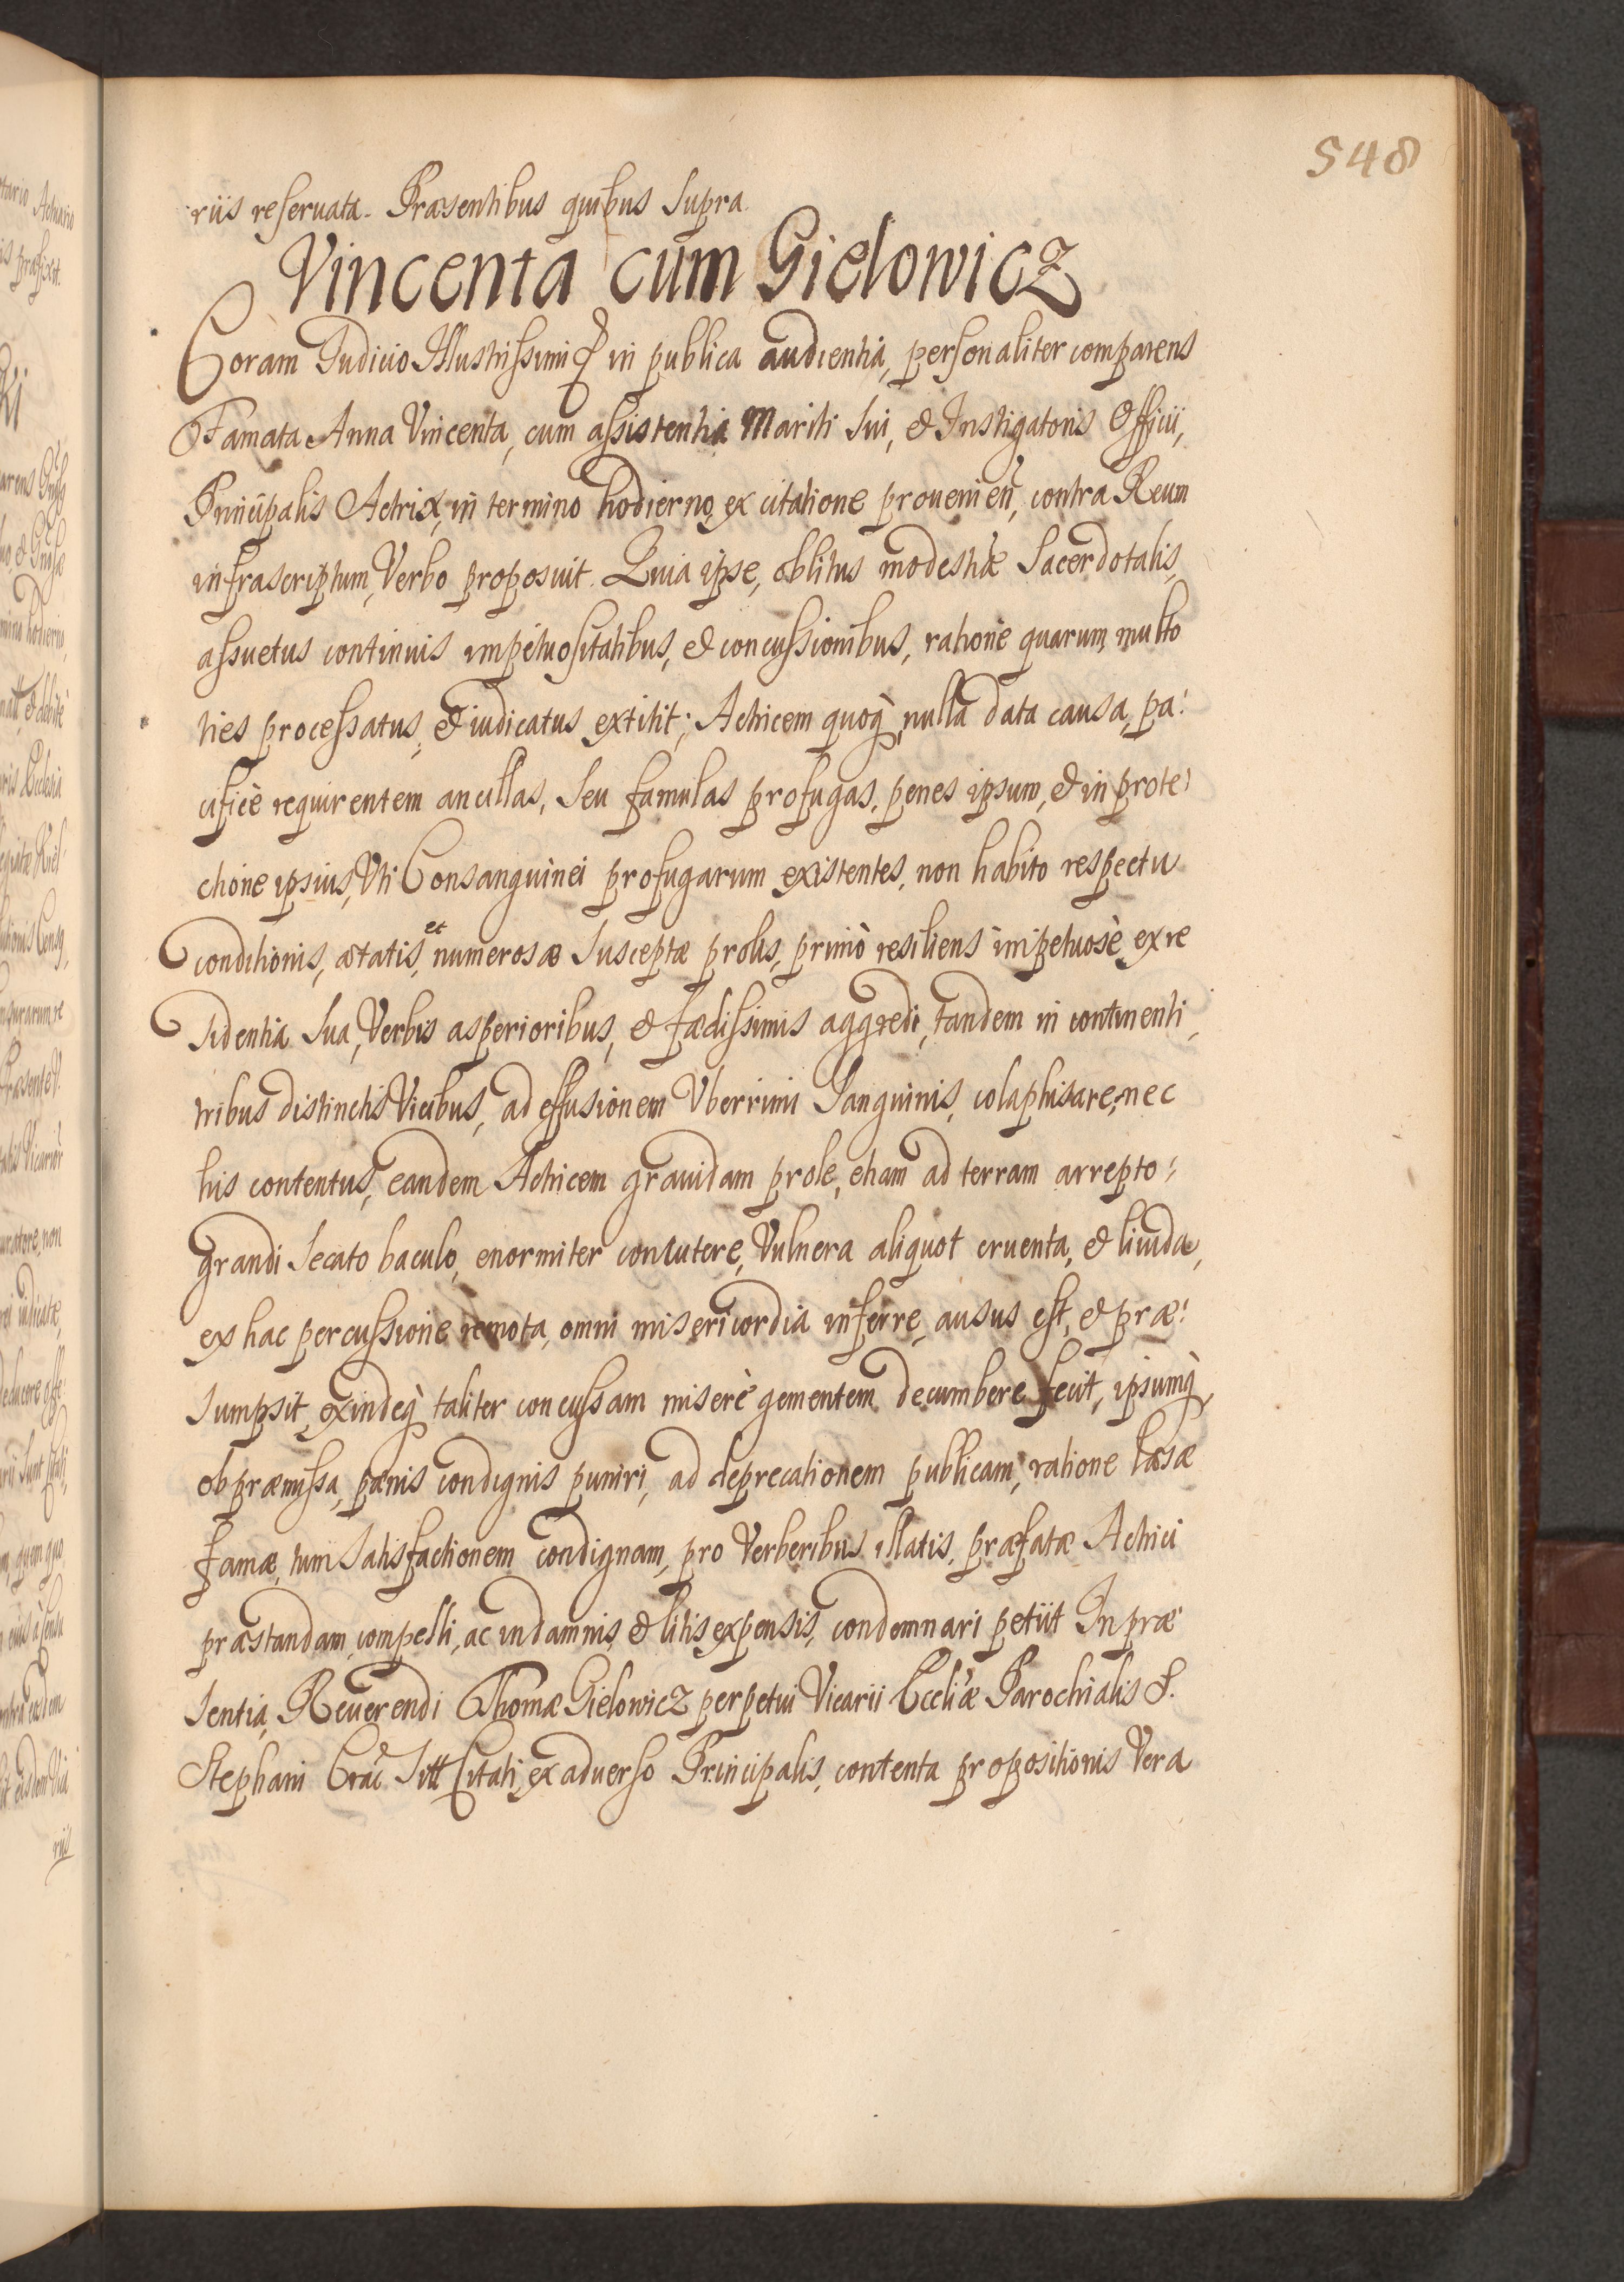 548
riis reseruata. Præsentibus quibus supra.
Vincenta cum Gielowicz
Coram Iudicio Illustrissimi in publica audientia, personaliter comparens
Famata Anna Vincenta, cum assistentia Mariti sui, & Instigatoris Officii,
Principalis Actrix, in termino hodierno, ex citatione prouenien, contra Reum
infrascriptum, Verbo proposuit. Quia ipse, oblitus modestiæ Sacerdotalis,
assuetus continuis impetuositatibus, & concussionibus, ratione quarum, multo
ties processatus, & iudicatus extitit; Actricem quoq, nulla data causa, pa:
cificè requirentem ancillas, seu famulas profugas, penes ipsum, & in prote:
ctione ipsius, Vti Consanguinei profugarum existentes, non habito respectu
conditionis, ætatis, et numerosæ susceptæ prolis, primò resiliens impetuosè, ex re
sidentia sua, Verbis asperioribus, & fædissimis aggredi, tandem in continenti,
tribus distinctis Vicibus, ad effusionem Vberrimi Sanguinis, colaphisare, nec
his contentus, eandem Actricem grauidam prole, etiam ad terram arrepto:
grandi secato baculo, enormiter concutere, Vulnera aliquot cruenta, & liuida,
ex hac percussione remota, omni misericordia inferre, ausus est, & præ:
sumpsit, exindeq taliter concussam miserè gementem decumbere fecit, ipsumq,
ob præmissa, pænis condignis puniri, ad deprecationem publicam, ratione læsæ
famæ, tum satisfactionem condignam, pro Verberibus illatis, præfatæ Actrici
præstandam, compelli, ac in damnis, & litis expensis, condemnari petiit In præ
sentia, Reuerendi Thomæ Gielowicz perpetui Vicarii Eccliæ Parochialis S.
Stephani Crac Sitt Citati, ex aduerso Principalis, contenta propositionis Vera